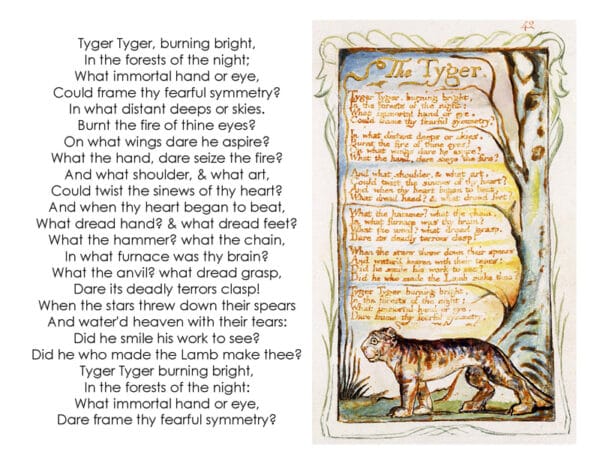 Tyger Tyger, burning bright,
In the forests of the night;
What immortal hand or eye,
Could frame thy fearful symmetry?
In what distant deeps or skies.
Burnt the fire of thine eyes?
On what wings dare he aspire?
What the hand, dare seize the fire?
And what shoulder, & what art,
Could twist the sinews of thy heart?
And when thy heart began to beat,
What dread hand? & what dread feet?
What the hammer? what the chain,
In what furnace was thy brain?
What the anvil? what dread grasp,
Dare its deadly terrors clasp!
When the stars threw down their spears
And water'd heaven with their tears:
Did he smile his work to see?
Did he who made the Lamb make thee?
Tyger Tyger burning bright,
In the forests of the night:
What immortal hand or eye,
Dare frame thy fearful symmetry?
42
The Tyger.
Tyger Tyger, burning bright,
In the forests of the night:
What immortal hand or eye,
Could frame thy fearful symmetry?
In what distant deeps or skies,
Burnt the fire of thine eyes?
On what wings dare he aspire?
What the hand, dare seize the fire?
And what shoulder, & what art,
Could twist the sinews of thy heart?
And when thy heart began to beat,
What dread hand? & what dread feet?
What the hammer? what the chain,
In what furnace was thy brain?
What the anvil? what dread grasp,
Dare its deadly terrors clasp!
When the stars threw down their spears
And water'd heaven with their tears:
Did he smile his work to see?
Did he who made the Lamb make thee?
Tyger Tyger burning bright,
In the forests of the night:
What immortal hand or eye,
Dare frame thy fearful symmetry?